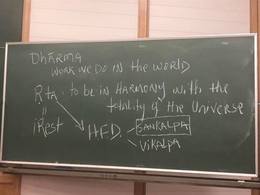 DHARMA
WORK WE DO IN THE WORLD
Rta : to be in HARMONY with the
totality of the UNIVERSE
=
iRest
HFD - SANKALPA
- VIKALPA